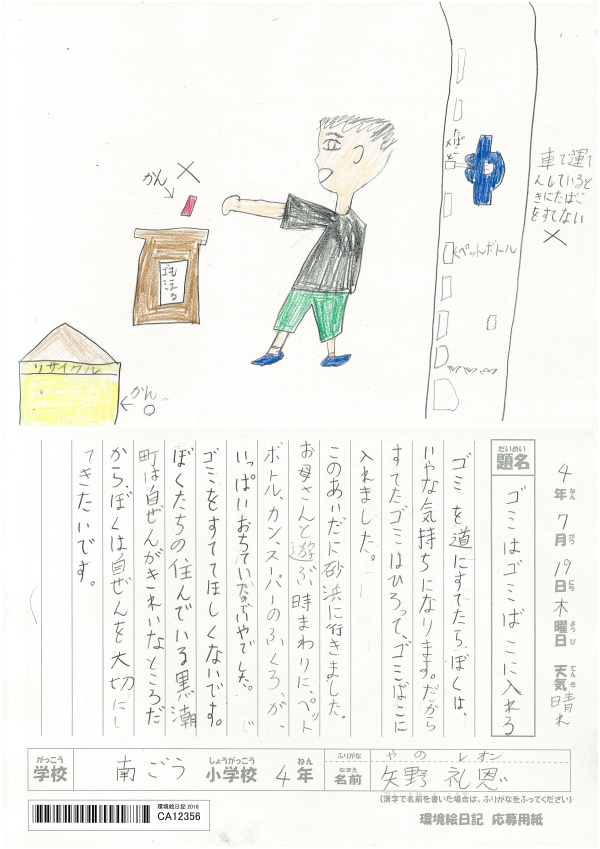 かん
もえる
ゴミ
リサイクル
かん
たばこ
ペットボトル
車で運て
んしていると
きにたばこ
をすてない
4年7月19日木曜日 天気 晴れ
ねん がつ にち ようび てんき
だいめい
題名
ゴミはゴミばこに入れる
ゴミを道にすてたら、ぼくは、
いやな気持ちになります。だから
すてたゴミはひろって、ゴミばこに
入れました。
このあいだに砂浜に行きました。
お母さんと遊ぶ時まわりに、ペット
ボトル、カン、スーパーのふくろ、が、
いっぱいおちていたのでいやでした。
ゴミをすててほしくないです。
ぼくたちの住んでいる黒潮
町は自ぜんがきれいなところだ
から、ぼくは自ぜんを大切にし
てきたいです。
がっこう
学校
南ごう
しょうがっこう
小学校
4
ねん
年
ふりがな
やの レオン
なまえ
名前
矢野 礼恩
(漢字で名前を書いた場合は、ふりがなをふってください)
環境絵日記2018
CA12356
環境絵日記 応募用紙